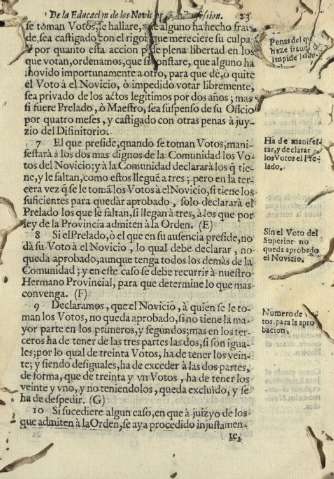 De la Educacion de los Novi
sion. 23
se toman Votos, se hallare, que alguno ha hecho frau-
de, sea castigado con el rigor, que mereciere su culpa,
y por quanto esta accion pide plena libertad en los
que votan, ordenamos, que si constare, que alguno ha
movido importunamente a otro, para que dè, o quite
el Voto à el Novicio, ò impedido votar libremente,
sea privado de los actos legitimos por dos años; mas
si fuere Prelado, ò Maestro, sea suspenso de su Oficio
por quatro meses, y castigado con otras penas à juyz-
zio del Difinitorio.
7 El que preside, quando se toman Votos, mani-
festarà à los dos mas dignos de la Comunidad los Vo-
tos del Novicio; y à la Comunidad declararà los q̃ tie-
ne, y le faltan, como estos lleguè a tres; pero en la ter-
cera vez q̃ se le tomã los Votos à el Novicio, si tiene los
suficientes para quedàr aprobado, solo declararà el
Prelado los que le faltan, si llegan à tres, à los que por
ley de la Provincia admiten à la Orden. (E)
8 Si el Prelado, ò el que en su ausencia preside, no
dà su Voto à el Novicio, lo qual debe declarar, no
queda aprobado, aunque tenga todos los demàs de la
Comunidad; y en este caso se debe recurrir à nuestro
Hermano Provincial, para que determine lo que mas
convenga. (F)
9 Declaramos, que el Novicio, à quien se le to-
man los Votos, no queda aprobado, si no tiene la ma-
yor parte en los primeros, y segundos; mas en los ter-
ceros ha de tener de las tres partes las dos, si son igua-
les; por lo qual de treinta Votos, ha de tener los vein-
te; y siendo desiguales, ha de exceder à las dos partes,
de forma, que de treinta y vn Votos, ha de tener los
veinte y vno, y no teniendolos, queda excluido, y se
ha de despedir. (G)
10 Si sucediere algun caso, en que à juizyo de los
que admiten à la Orden, se aya procedido injustamen-
te,
Penas del q̃
impide
Ha de manifes-
tar, y declarar
los Votos el Pre-
lado.
Sin el Voto del
Superior no
queda aprobado
el Novicio.
Numero de Vo-
tos para la apro-
bacion.